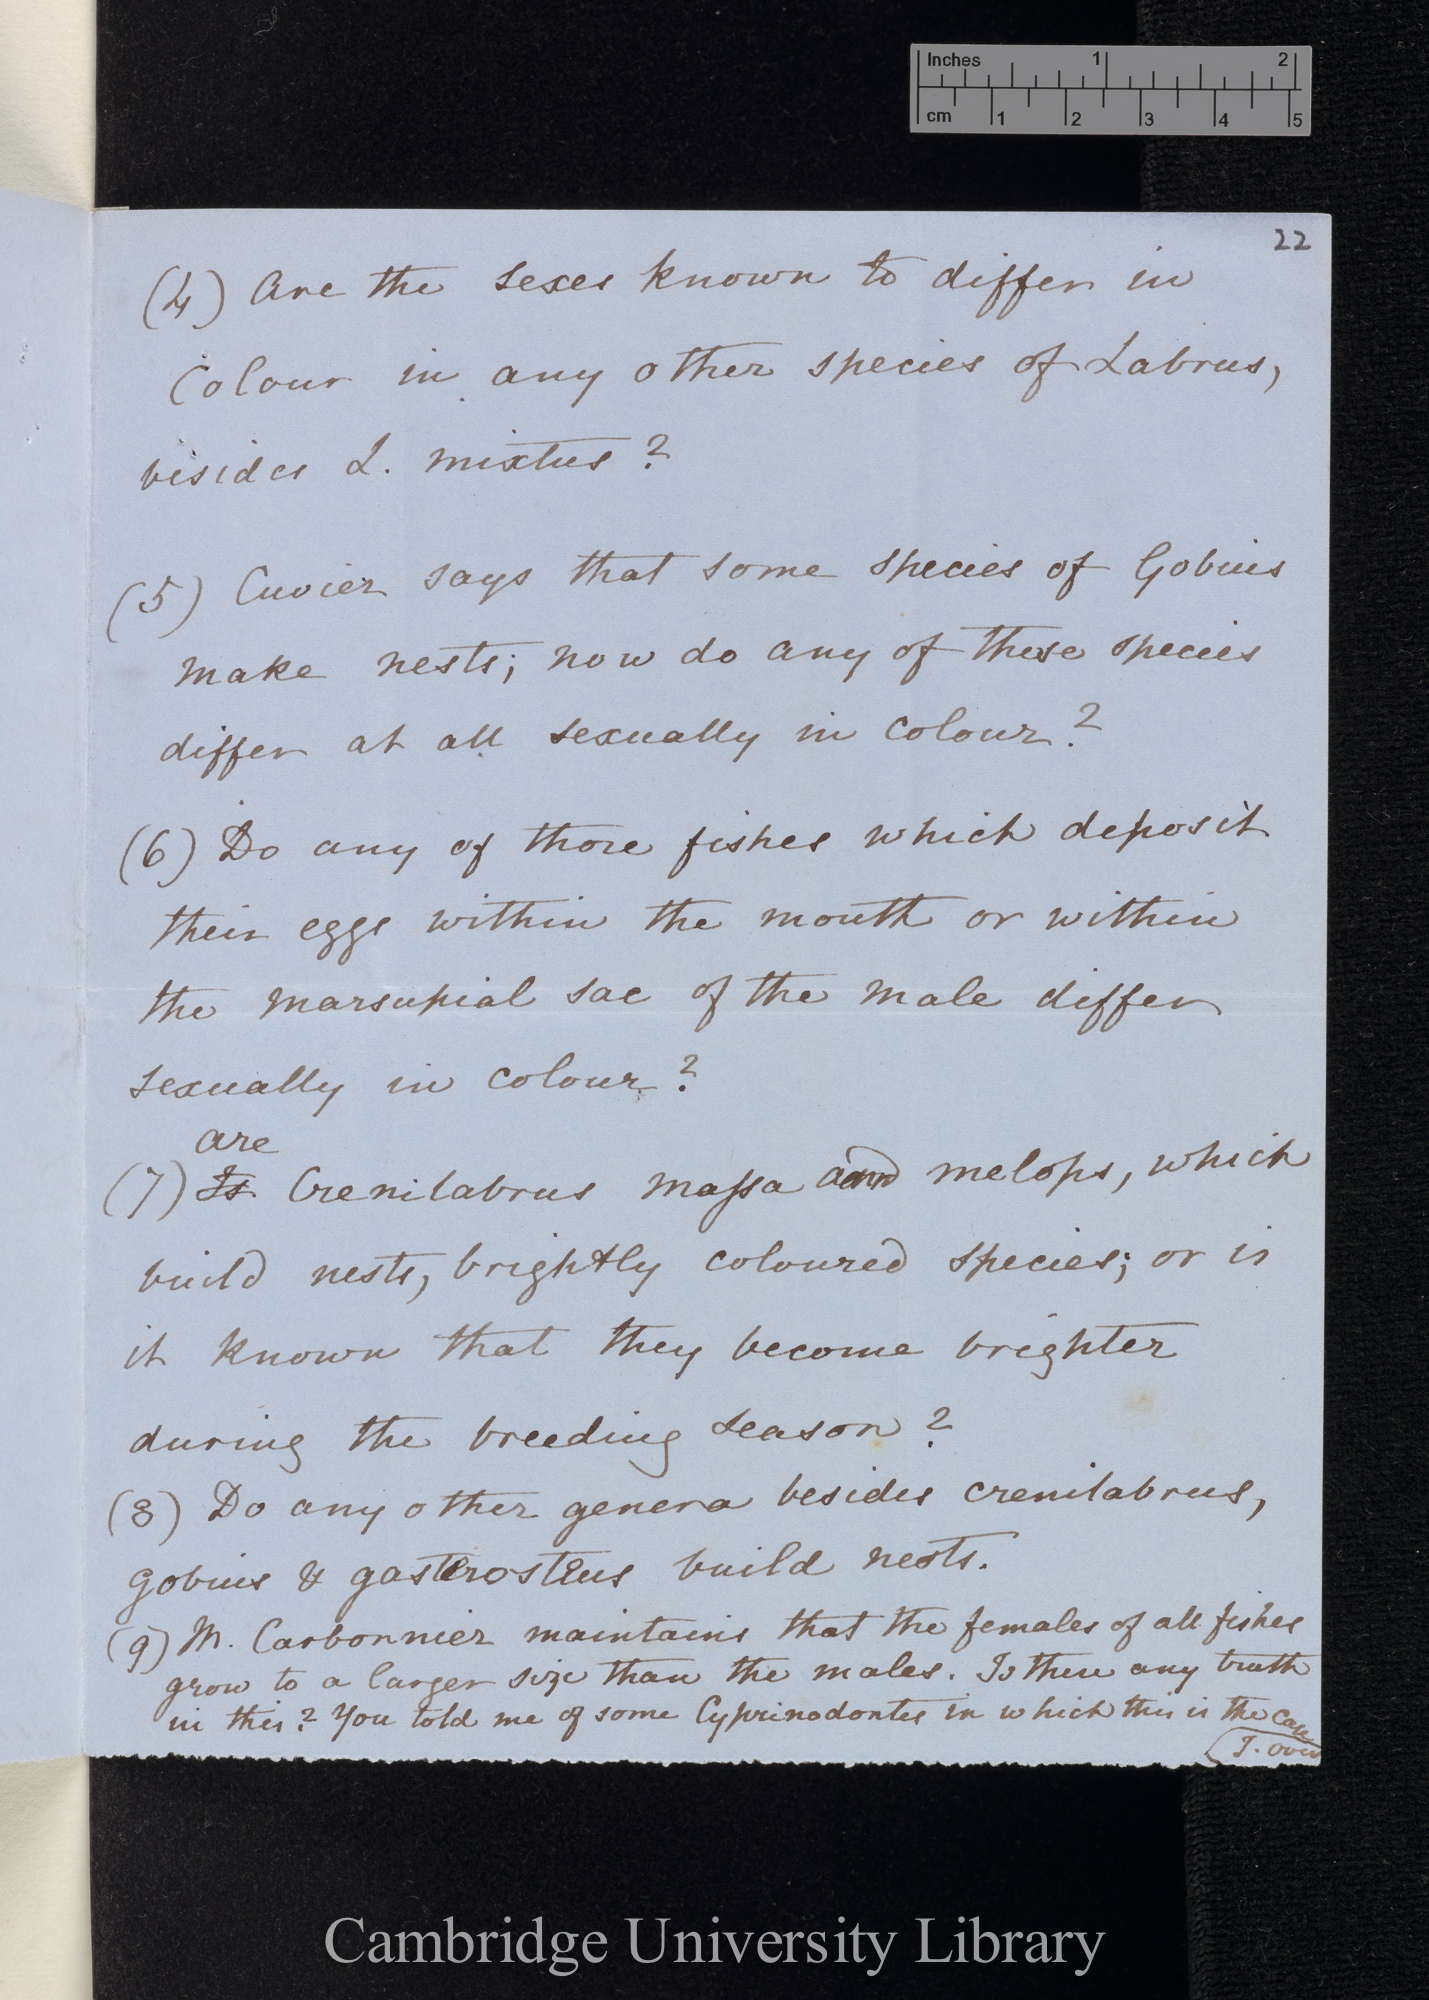 Inches 1 2
cm 1 2 3 4 5
22
(4) Are the sexes known to differ in
colour in any other species of Labrus,
besides L. mixtus?
(5) Cuvier says that some species of Gobius
make nests; now do any of these species
differ at all sexually in colour?
(6) Do any of those fishes which deposit
their eggs within the mouth or within
the marsupial sac of the male differ
sexually in colour?
are
(7) Is Crenilabrus massa and melops, which
build nests, brightly coloured species; or is
it known that they become brighter
during the breeding season?
(8) Do any other genera besides crenilabrus,
gobius & gasterosteus build nests.
(9) M. Carbonnier maintains that the females of all fishes
grow to a larger size than the males. Is there any truth
in this? You told me of some Cyprinodontes in which this is the case
T. over
Cambridge University Library